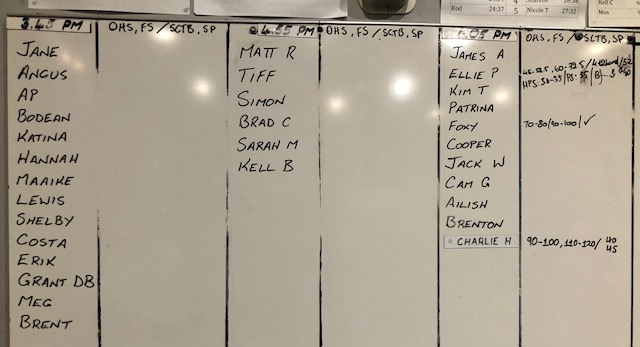 Rod 24:37
4
5
Starvie 16:38
Nicole T 27:32
Kell C
Mos
5.45 PM
OHS, FS / SCTB, SP
JANE
ANGUS
AP
BODEAN
KATINA
HANNAH
MAAIKE
LEWIS
SHELBY
COSTA
ERIK
GRANT DB
MEG
BRENT
4.55 PM
OHS, FS / SCTB, SP
MATT R
TIFF
SIMON
BRAD C
SARAH M
KELL B
05 PM
OHS, FS / SCTB, SP
JAMES A
ELLIE P
KIM T
PATRINA
FOXY 70-80/90-100/✓
COOPER
JACK W
CAM G
AILISH
BRENTON
CHARLIE H 90-100, 110-120/ 40
45